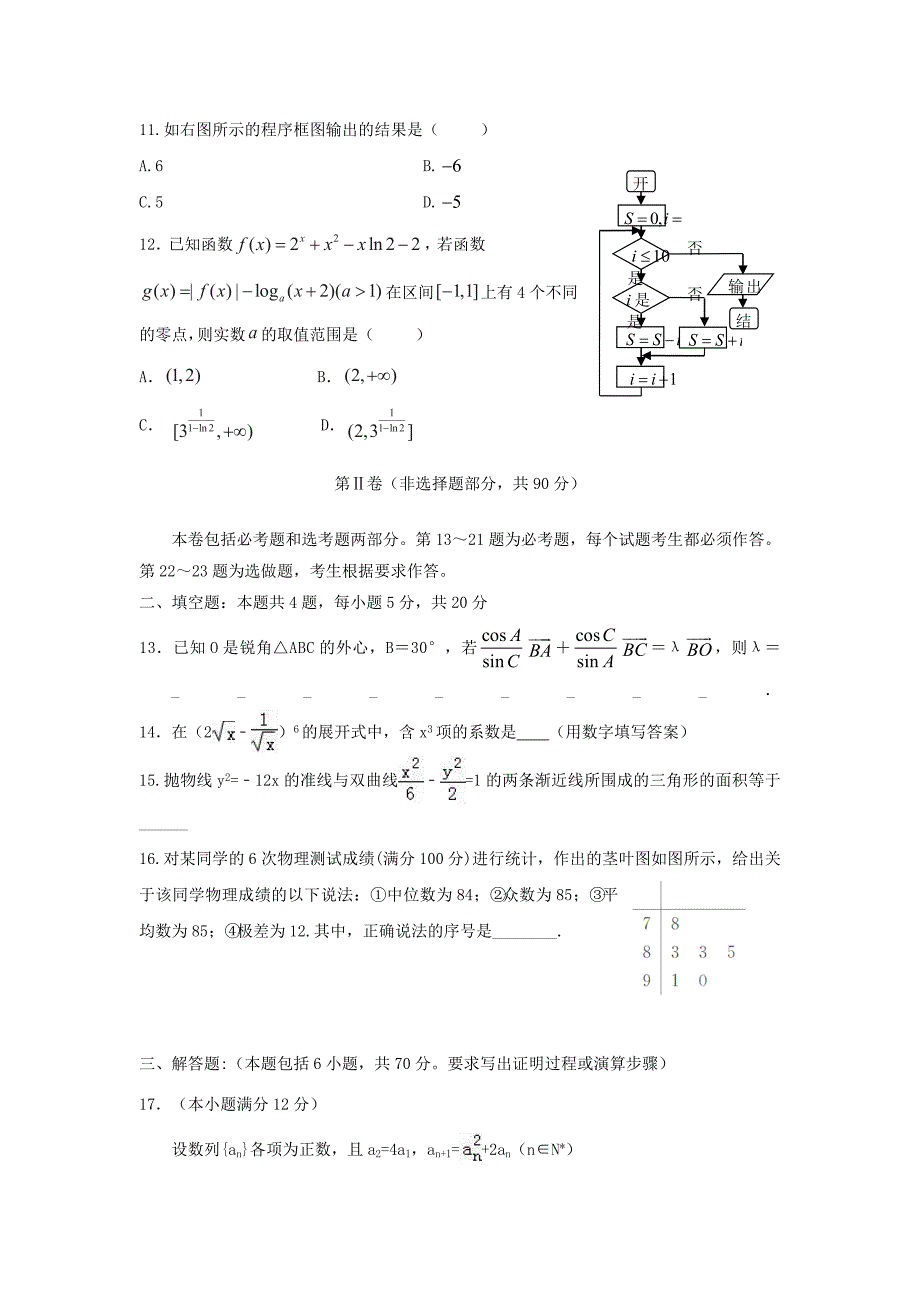 11.如右图所示的程序框图输出的结果是（　　）
A.6　　B.−6
C.5　　D.−5
12．已知函数f(x)=2^x+x^2−xln2−2，若函数
g(x)=|f(x)|−log_a(x+2)(a>1)在区间[−1,1]上有4个不同
的零点，则实数a的取值范围是（　　）
A．(1,2)　　B．(2,+∞)
C．[3^{\frac{1}{1−ln2}},+∞)　　D．(2,3^{\frac{1}{1−ln2}}]
开
S=0,i=
i≤10
否
是
输出
i是
否
是
结
S=S−i
S=S+i
i=i+1
第Ⅱ卷（非选择题部分，共90分）
本卷包括必考题和选考题两部分。第13～21题为必考题，每个试题考生都必须作答。
第22～23题为选做题，考生根据要求作答。
二、填空题：本题共4题，每小题5分，共20分
13．已知O是锐角△ABC的外心，B＝30°，若\frac{cosA}{sinC}\overrightarrow{BA}＋\frac{cosC}{sinA}\overrightarrow{BC}＝λ\overrightarrow{BO}，则λ＝
_ _ _ _ _ _ _ _ _ ．
14．在（2√x﹣\frac{1}{√x}）^6的展开式中，含x^3项的系数是____（用数字填写答案）
15.抛物线y^2=﹣12x的准线与双曲线\frac{x^2}{6}﹣\frac{y^2}{2}=1的两条渐近线所围成的三角形的面积等于
______
16.对某同学的6次物理测试成绩(满分100分)进行统计，作出的茎叶图如图所示，给出关
于该同学物理成绩的以下说法：①中位数为84；②众数为85；③平
均数为85；④极差为12.其中，正确说法的序号是________．
7 8
8 3 3 5
9 1 0
三、解答题:（本题包括6小题，共70分。要求写出证明过程或演算步骤）
17．（本小题满分12分）
设数列{a_n}各项为正数，且a_2=4a_1，a_{n+1}=a_n^2+2a_n（n∈N*）